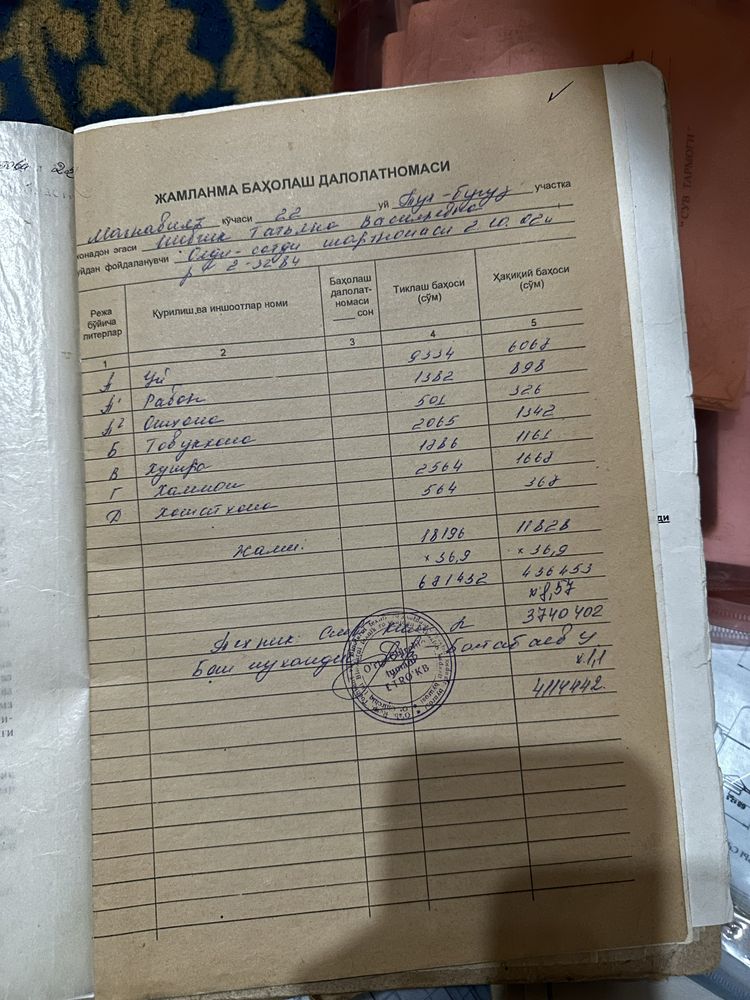 ЖАМЛАНМА БАҲОЛАШ ДАЛОЛАТНОМАСИ
Маънавият кўчаси 22 уй участка
хонадон эгаси Татьяна Васильевна
уйдан фойдаланувчи Олди-сотди шартномаси 2.10.02й
Режа бўйича литерлар
Қурилиш ва иншоотлар номи
Баҳолаш далолат-номаси ____ сон
Тиклаш баҳоси (сўм)
Ҳақиқий баҳоси (сўм)
1 2 3 4 5
А Уй 9334 6068
А¹ Равон 1382 898
А² Ошхона 501 326
Б Товукхона 2065 1342
В Хужра 1786 1161
Г Хаммом 2564 1668
Д Хожатхона 564 368
Жами: 18196 11828
×36,9 ×36,9
671432 436453
×8,57
3740402
Техник:
Бош мухандис Ботабаев У
×1,1
4114442.
"СУВ ТАРМОҒИ-